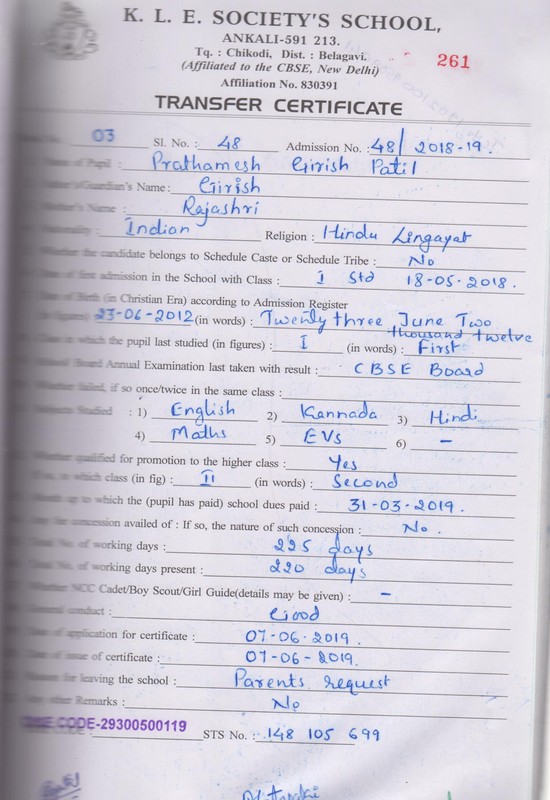 K. L. E. SOCIETY'S SCHOOL,
ANKALI-591 213.
Tq. : Chikodi, Dist. : Belagavi.
(Affiliated to the CBSE, New Delhi)
261
Affiliation No. 830391
TRANSFER CERTIFICATE
03 Sl. No. : 48 Admission No. : 48/ 2018-19.
Name of Pupil : Prathamesh Girish Patil
Father's/Guardian's Name : Girish
Mother's Name : Rajashri
Nationality : Indian Religion : Hindu Lingayat
Whether the candidate belongs to Schedule Caste or Schedule Tribe : No
Date of first admission in the School with Class : I Std 18-05-2018.
Date of Birth (in Christian Era) according to Admission Register
23-06-2012 (in words) : Twenty three June Two
thousand twelve
in which the pupil last studied (in figures) : I (in words) : First
Board Annual Examination last taken with result : CBSE Board
Whether failed, if so once/twice in the same class :
Subjects Studied : 1) English 2) Kannada 3) Hindi
4) Maths 5) EVs 6) -
Whether qualified for promotion to the higher class : Yes
to which class (in fig) : II (in words) : Second
Month up to which the (pupil has paid) school dues paid : 31-03-2019.
concession availed of : If so, the nature of such concession : No.
Total No. of working days : 225 days
Total No. of working days present : 220 days
Whether NCC Cadet/Boy Scout/Girl Guide(details may be given) : -
General conduct : Good
Date of application for certificate : 07-06-2019.
Date of issue of certificate : 07-06-2019.
Reason for leaving the school : Parents request
Any other Remarks : No
DISE CODE-29300500119
STS No. : 148 105 699